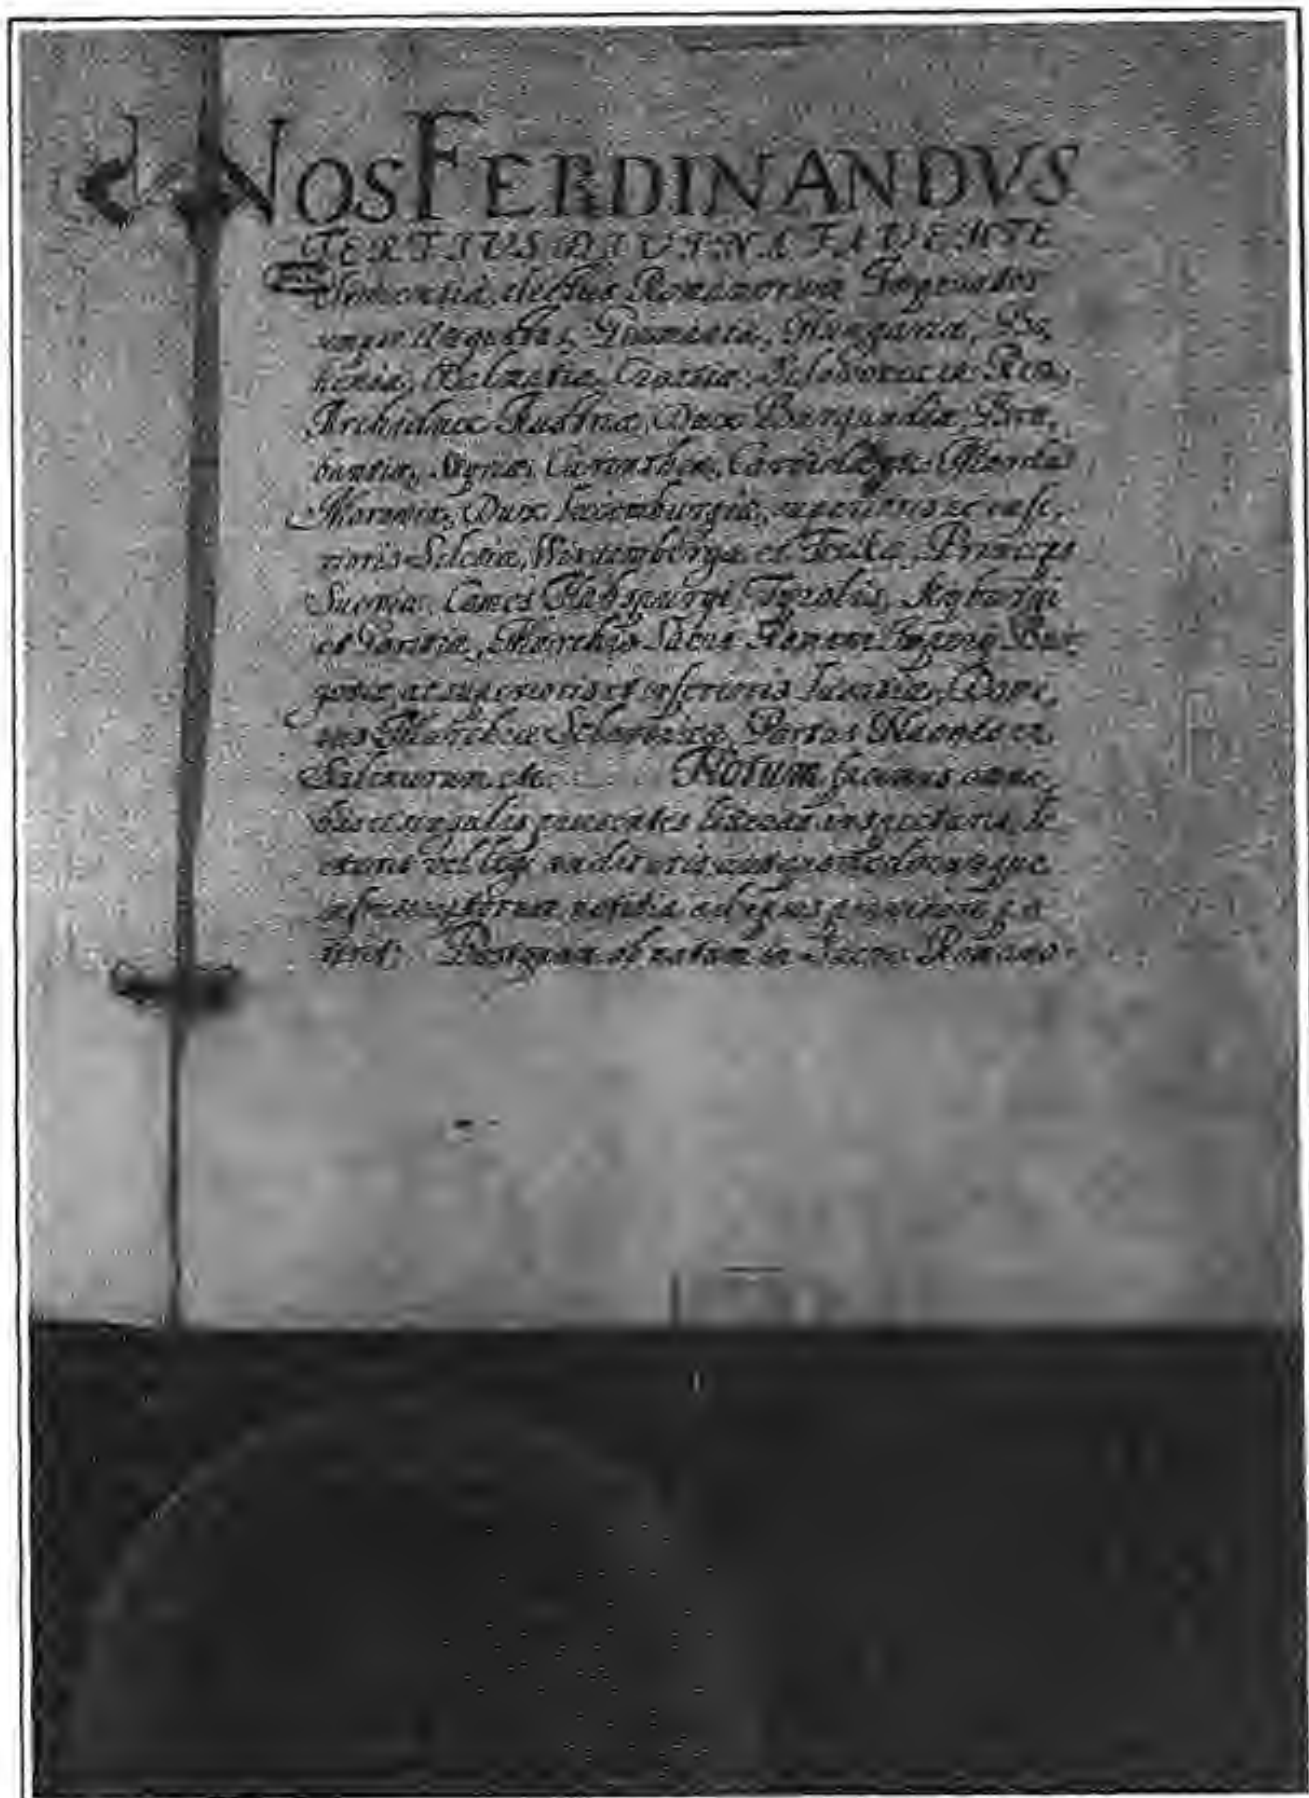 NOS FERDINANDVS
TERTIVS DIVINA FAVENTE
Clementia, electus Romanorum Imperator
semper Augustus, Germaniæ, Hungariæ, Bo,
hemiæ, Dalmatiæ, Croatiæ, Sclavoniæ etc Rex,
Archidux Austriæ, Dux Burgundiæ, Bra,
bantiæ, Styriæ, Carinthiæ, Carniolæ,
Moraviæ, Dux Lucemburgiæ, superioris ac infe,
rioris Silesiæ, Wirtembergæ et Teckæ, Princeps
Sueviæ, Comes Habspurgi, Tyrolis, Kyburgi
et Goritiæ, Marchio Sacri Romani Imperij Bur
goviæ, ac superioris et inferioris Lusatiæ, Domi,
nus Marchiæ Sclavonicæ, Portus Naonis et
Salinarum etc. Notum facimus omni,
bus et singulis præsentes literas inspecturis, le
cturis vel legi audituris
infrascriptorum notitia ad ipsos pervenire po
terit; Postquam in Sacro Romano